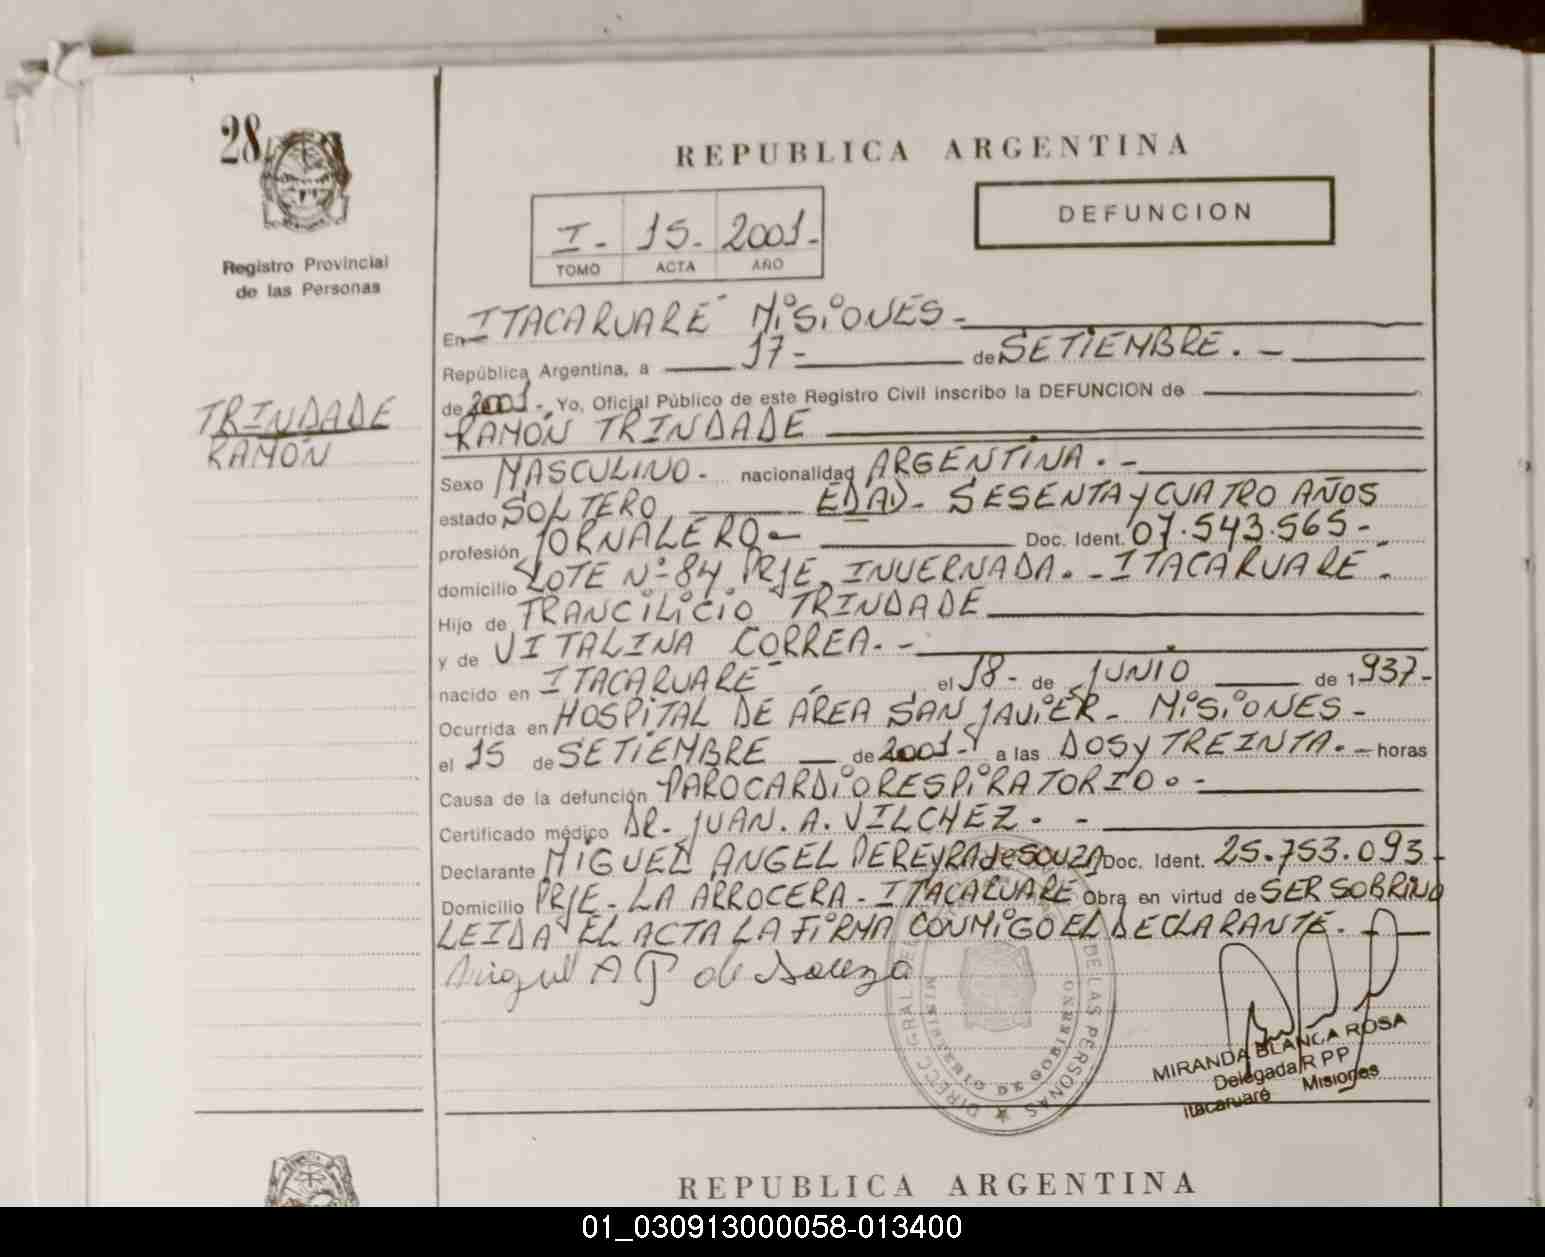 28
REPUBLICA ARGENTINA
DEFUNCION
I- 15- 2001-
TOMO ACTA AÑO
Registro Provincial
de las Personas
TRINDADE
RAMÓN
En ITACARUARE MiSiONES-
República Argentina, a 17- de SETIEMBRE. -
de 2001-. Yo, Oficial Público de este Registro Civil inscribo la DEFUNCION de
RAMÓN TRINDADE
Sexo MASCULINO- nacionalidad ARGENTINA. -
estado SOLTERO EDAD- SESENTA y CUATRO AÑOS
profesión JORNALERO- Doc. Ident. 07.543.565-
domicilio LOTE Nº 84 PRJE. INVERNADA. - ITACARUARE-
Hijo de FRANCILICIO TRINDADE
y de VITALINA CORREA. -
nacido en ITACARUARE el 18- de JUNIO de 1937-
Ocurrida en HOSPITAL DE AREA SAN JAViER- MiSiONES-
el 15 de SETIEMBRE de 2001- a las DOS y TREINTA. - horas
Causa de la defunción PAROCARDiORESPiRATORIO. -
Certificado médico DR. JUAN. A. VILCHEZ. -
Declarante MiGUEL ANGEL PEREyRA de SOUZA Doc. Ident. 25.753.093-
Domicilio PRJE- LA ARROCERA- ITACARUARE Obra en virtud de SER SOBRINO
LEIDA EL ACTA LA FiRMA CONMiGO EL DECLARANTE. -
Miguel A P de Souza
DIRECC GRAL DE LAS PERSONAS
MINISTERIO DE GOBIERNO
MIRANDA BLANCA ROSA
Delegada R P P
Itacaruaré Misiones
REPUBLICA ARGENTINA
01_030913000058-013400